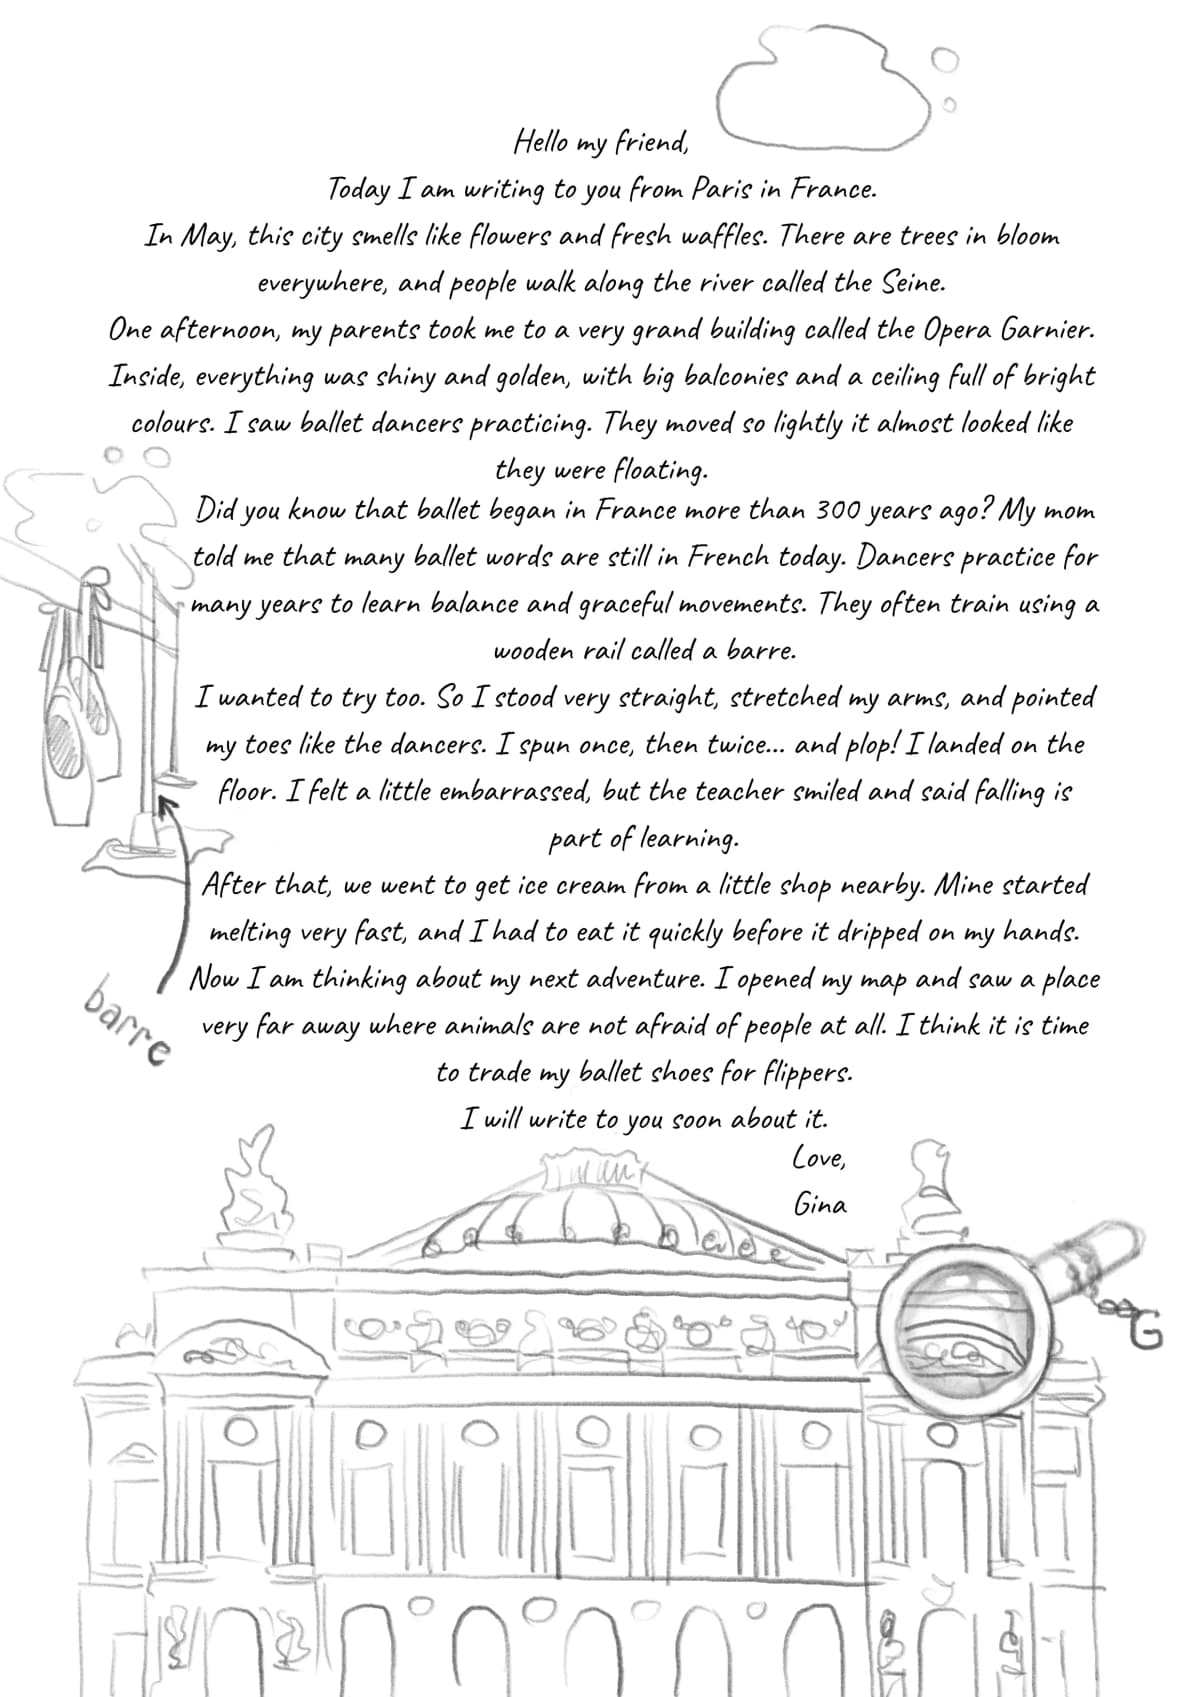 Hello my friend,
Today I am writing to you from Paris in France.
In May, this city smells like flowers and fresh waffles. There are trees in bloom
everywhere, and people walk along the river called the Seine.
One afternoon, my parents took me to a very grand building called the Opera Garnier.
Inside, everything was shiny and golden, with big balconies and a ceiling full of bright
colours. I saw ballet dancers practicing. They moved so lightly it almost looked like
they were floating.
Did you know that ballet began in France more than 300 years ago? My mom
told me that many ballet words are still in French today. Dancers practice for
many years to learn balance and graceful movements. They often train using a
wooden rail called a barre.
I wanted to try too. So I stood very straight, stretched my arms, and pointed
my toes like the dancers. I spun once, then twice... and plop! I landed on the
floor. I felt a little embarrassed, but the teacher smiled and said falling is
part of learning.
After that, we went to get ice cream from a little shop nearby. Mine started
melting very fast, and I had to eat it quickly before it dripped on my hands.
Now I am thinking about my next adventure. I opened my map and saw a place
very far away where animals are not afraid of people at all. I think it is time
to trade my ballet shoes for flippers.
I will write to you soon about it.
Love,
Gina
barre
G